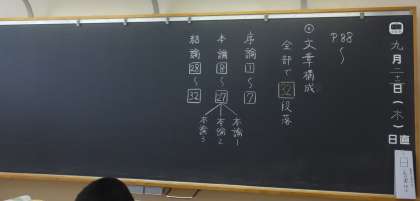 九月二十二日（木）
日直
P88〜
⊙文章構成
全部で32段落
序論1〜7
本論8〜27
本論1
本論2
本論3
結論28〜32